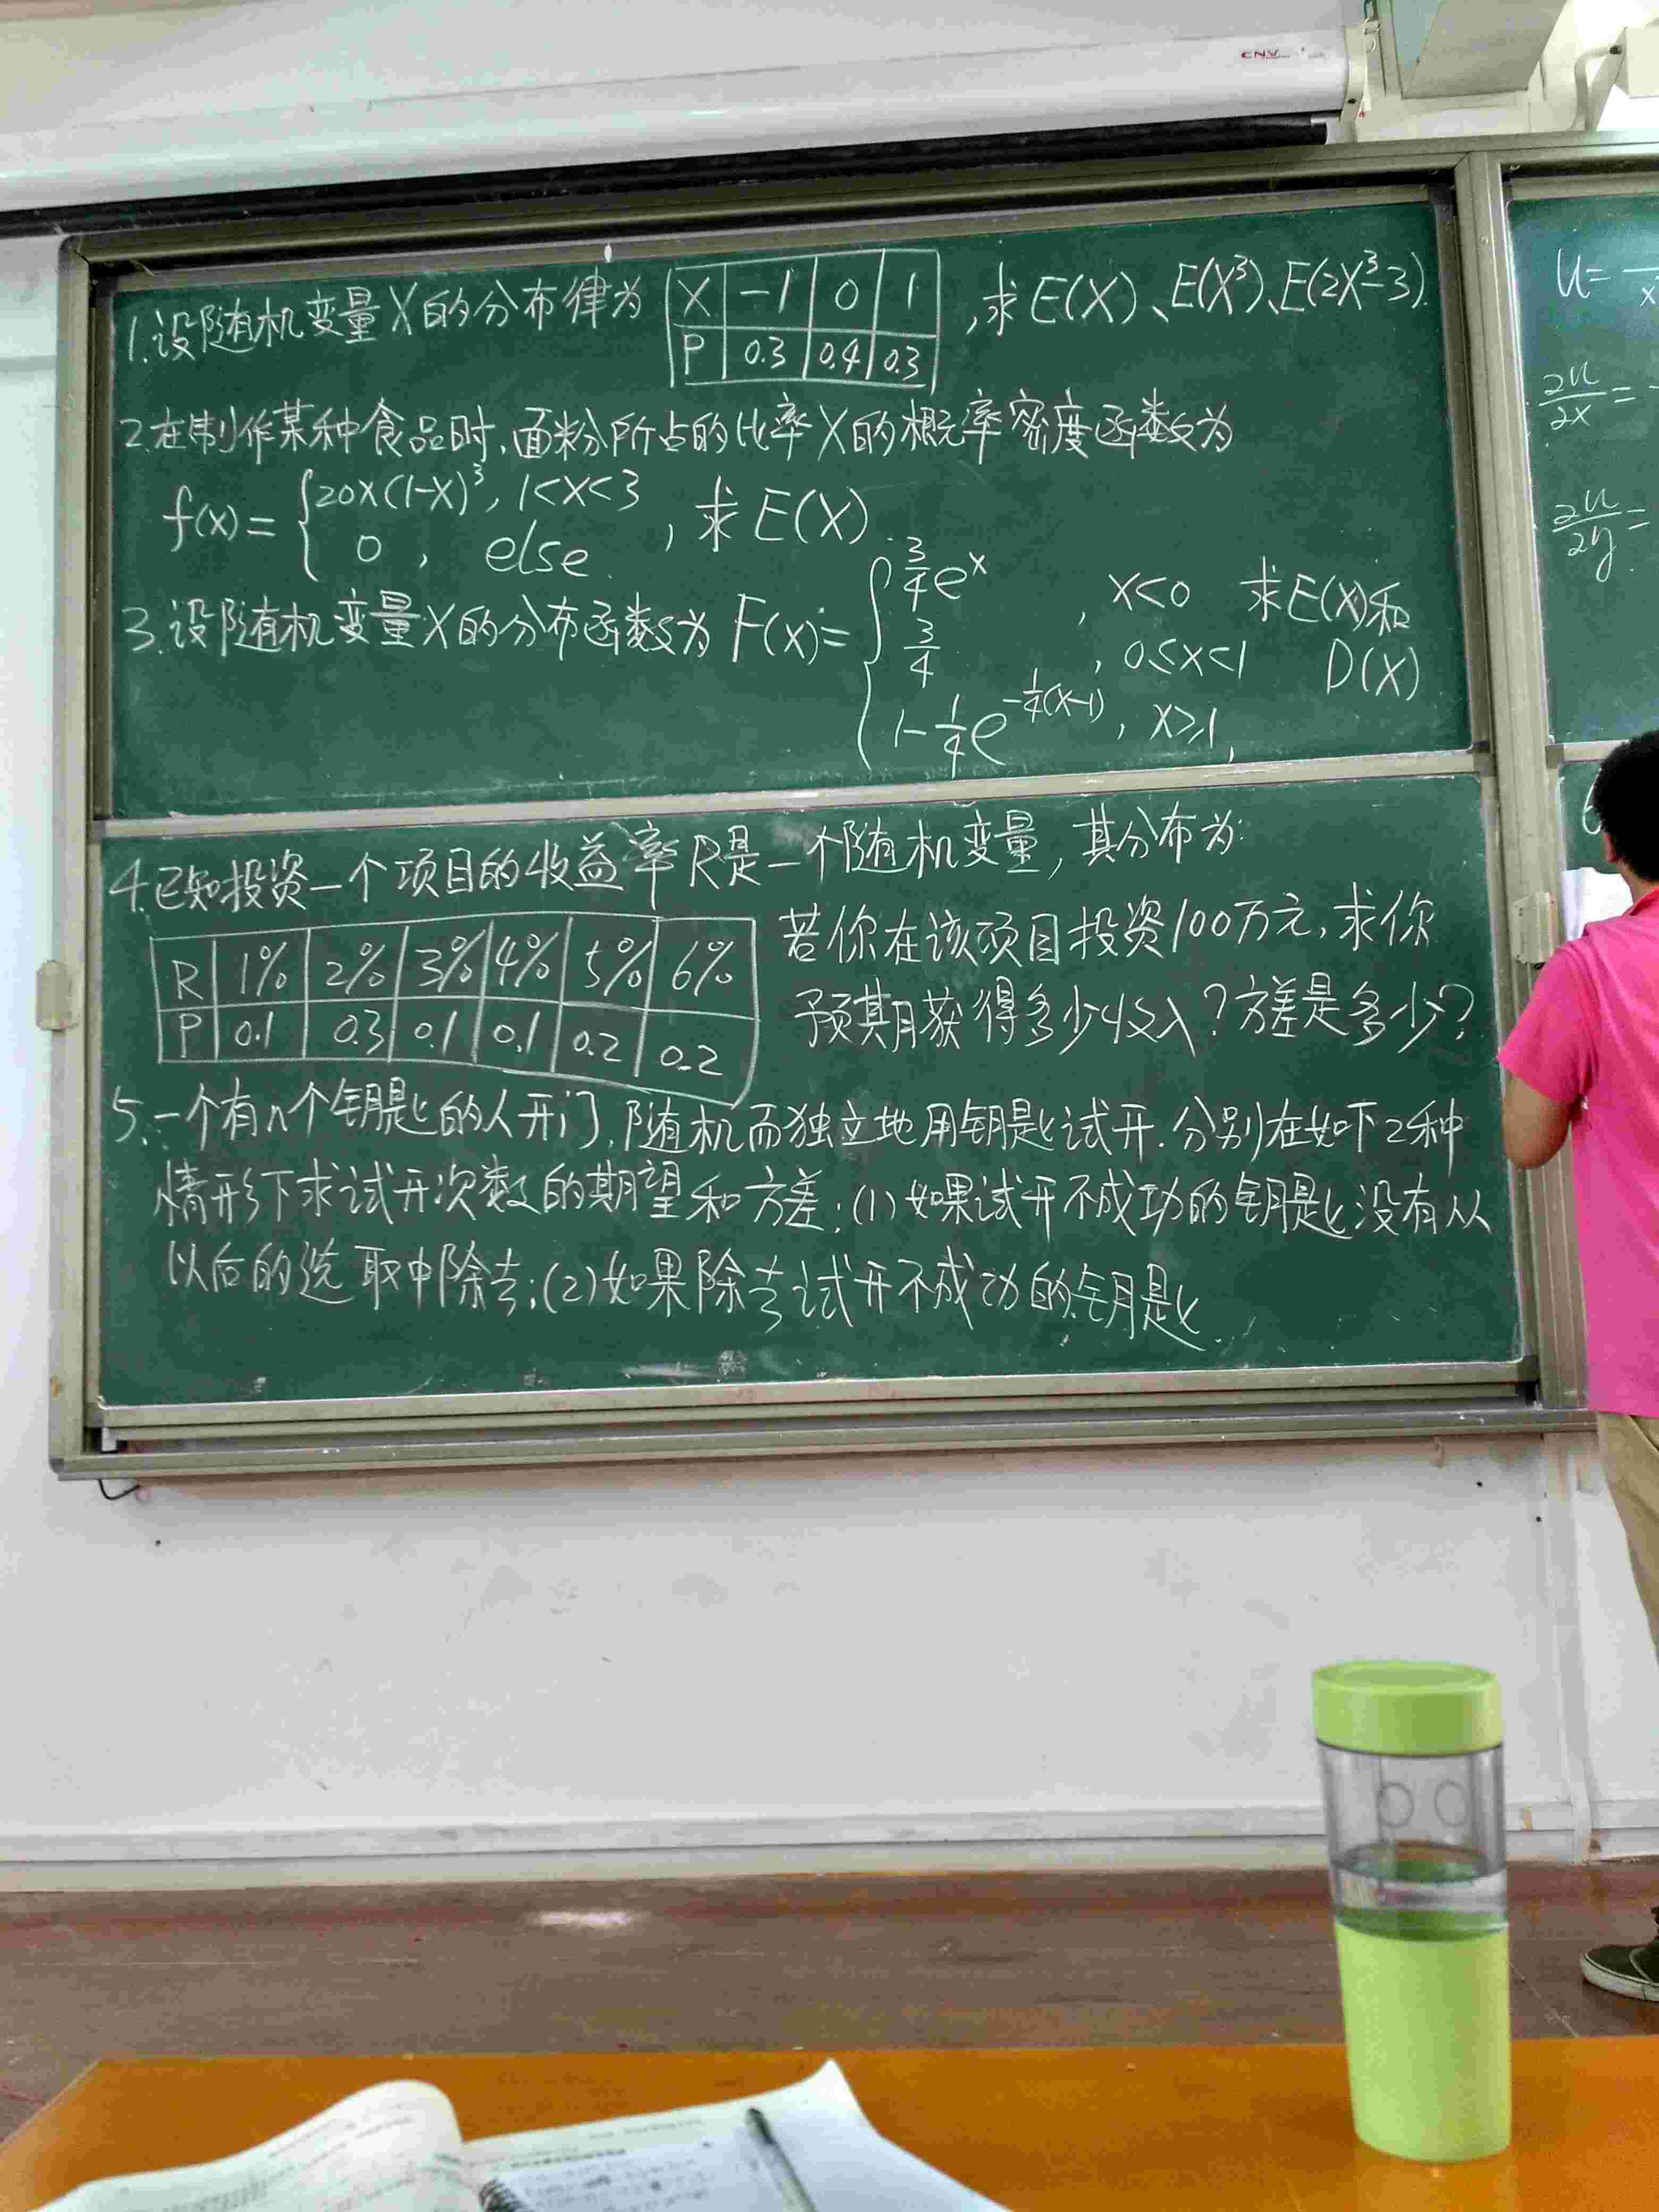 CNV
1.设随机变量X的分布律为 X -1 0 1 ,求E(X)、E(X³)、E(2X³-3).
P 0.3 0.4 0.3
2.在制作某种食品时,面粉所占的比率X的概率密度函数为
f(x)= { 20x(1-x)³, 1<x<3 , 求E(X).
0 , else.
3.设随机变量X的分布函数为 F(x)= { 3/4 e^x , x<0 求E(X)和
3/4 , 0≤x<1 D(X)
1-1/4 e^(-1/4(x-1)), x≥1.
4.已知投资一个项目的收益率R是一个随机变量,其分布为:
R 1% 2% 3% 4% 5% 6%
P 0.1 0.3 0.1 0.1 0.2 0.2
若你在该项目投资100万元,求你
预期获得多少收入?方差是多少?
5.一个有n个钥匙的人开门,随机而独立地用钥匙试开.分别在如下2种
情形下求试开次数的期望和方差:(1)如果试开不成功的钥匙没有从
以后的选取中除去;(2)如果除去试开不成功的钥匙.
u=
x
∂u/∂x=
∂u/∂y=